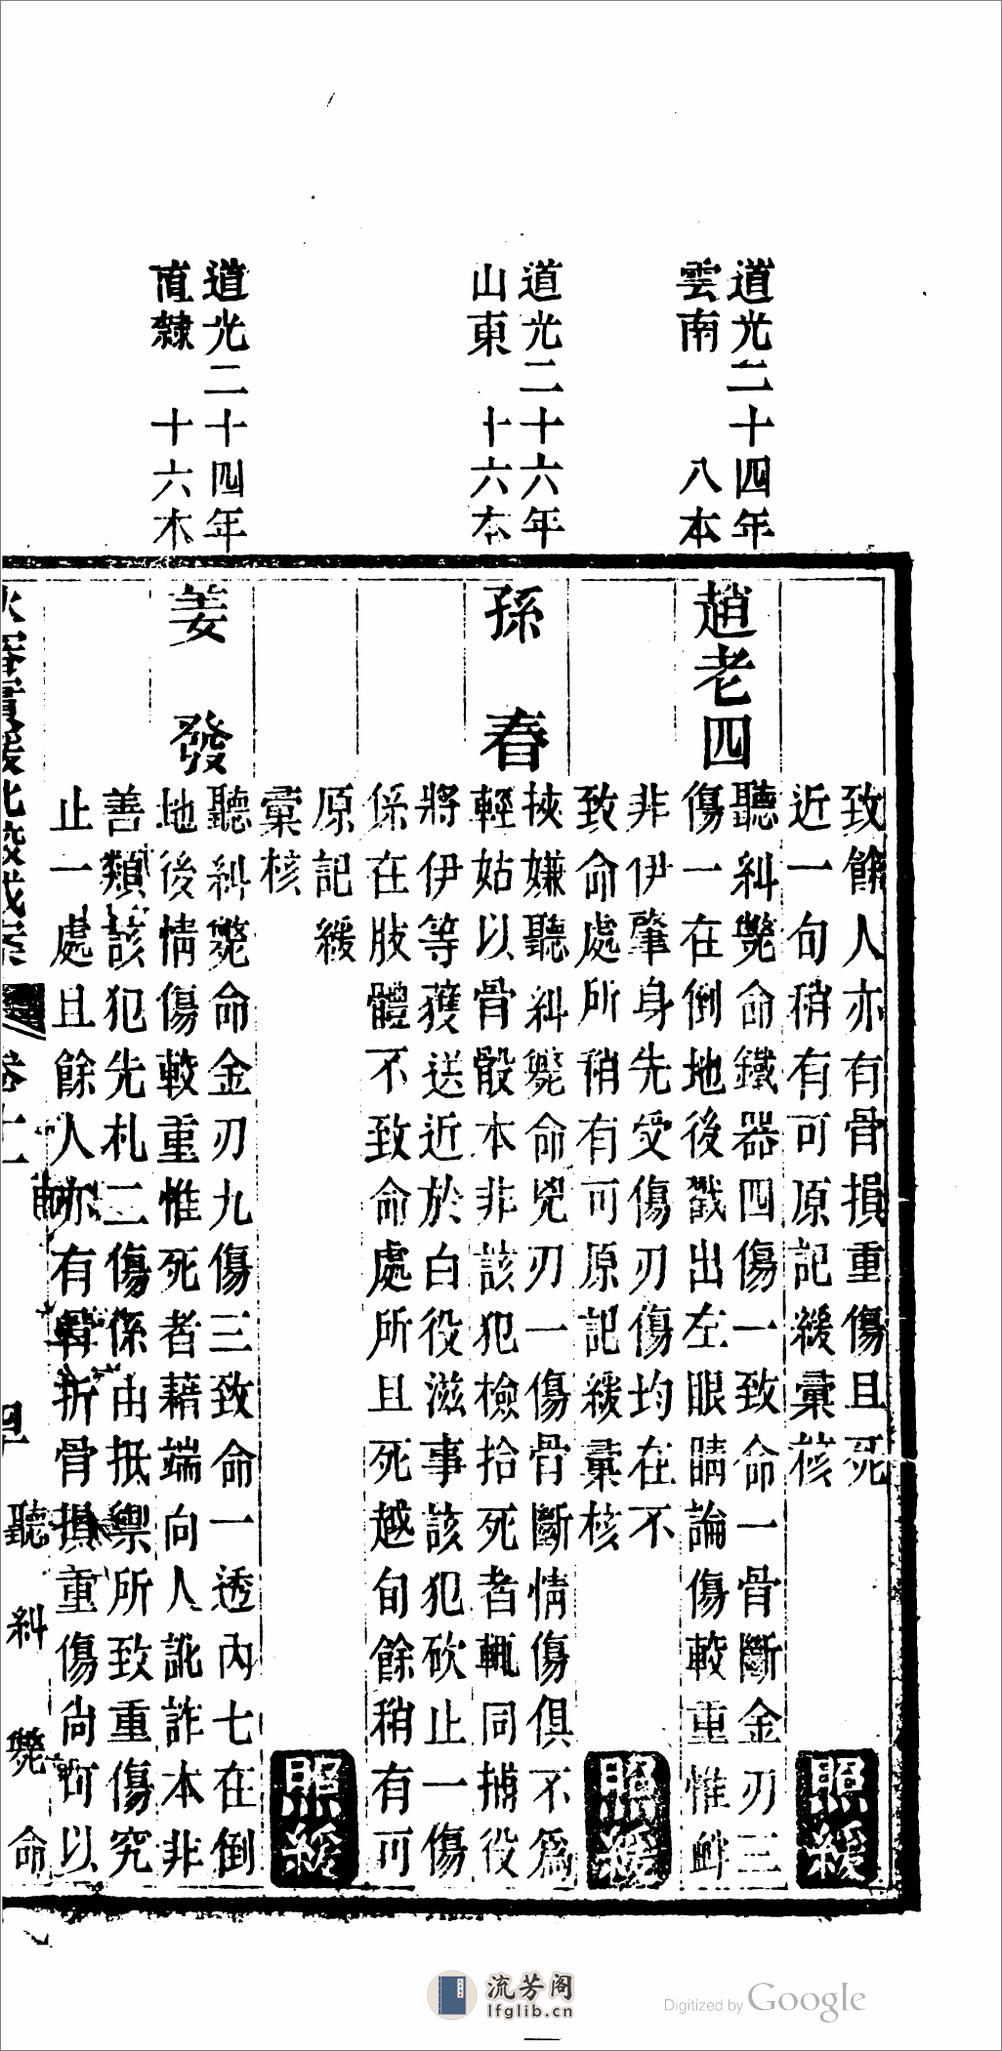 道光二十四年
雲南　八本
道光二十六年
山東　十六本
道光二十四年
直隸　十六本
致餘人亦有骨損重傷且死
近一句稍有可原記緩彙核
照緩
趙老四
聽糾斃命鐵器四傷一致命一骨斷金刃三
傷一在倒地後戳出左眼睛論傷較重惟衅
非伊肇身先受傷刃傷均在不
致命處所稍有可原記緩彙核
照緩
孫春
挾嫌聽糾斃命兇刃一傷骨斷情傷俱不爲
輕姑以骨骰本非該犯檢拾死者輒同捕役
將伊等獲送近於白役滋事該犯砍止一傷
係在肢體不致命處所且死越旬餘稍有可
原記緩
彙核
照緩
姜發
聽糾斃命金刃九傷三致命一透內七在倒
地後情傷較重惟死者藉端向人訛詐本非
善類該犯先札二傷係由抵禦所致重傷究
止一處且餘人亦有骨折骨損重傷尚可以
秋審實緩比較成案
卷十二
聽糾斃命
流芳阁
lfglib.cn
Digitized by Google